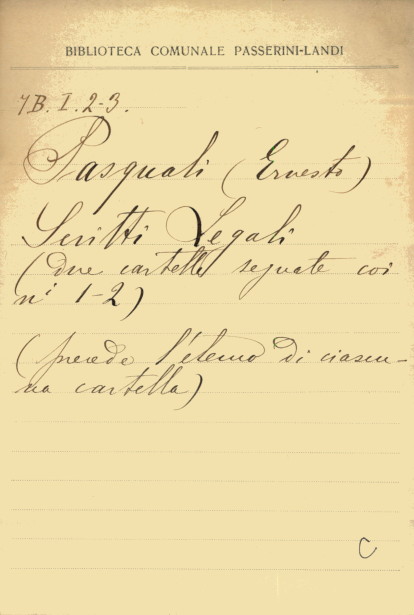 BIBLIOTECA COMUNALE PASSERINI-LANDI
YB. I. 2-3.
Pasquali (Ernesto)
Scritti Legali
(due cartelle segnate coi
ni 1-2)
(precede l'elenco di ciascu-
na cartella)
C